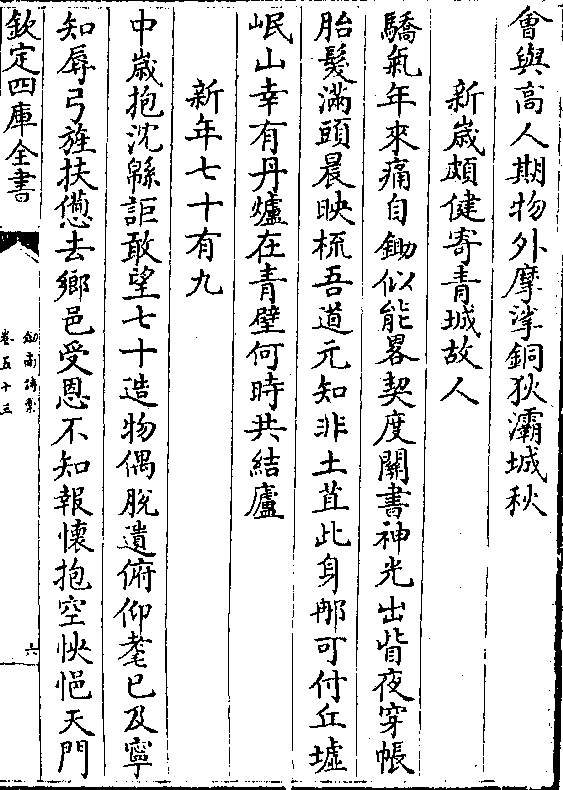 會與高人期物外摩挲銅狄灞城秋
新歲頗健寄青城故人
驕氣年來痛自鋤似能畧契度關書神光出眥夜穿帳
胎髮滿頭晨映梳吾道元知非土苴此身那可付丘墟
岷山幸有丹爐在青壁何時共結廬
新年七十有九
中歲抱沈緜詎敢望七十造物偶脫遺俯仰耄已及寧
知辱弓旌扶憊去鄉邑受恩不知報懷抱空怏悒天門
欽定四庫全書
劍南詩稾
卷五十三
六